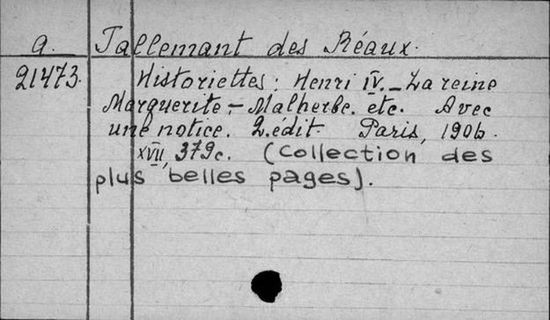 a. Tallemant des Réaux.
21473. Historiettes: Henri IV. – La reine
Marguerite, – Malherbe. etc. Avec
une notice. 2. édit. Paris, 1906.
XVII, 379c. (Collection des
plus belles pages).